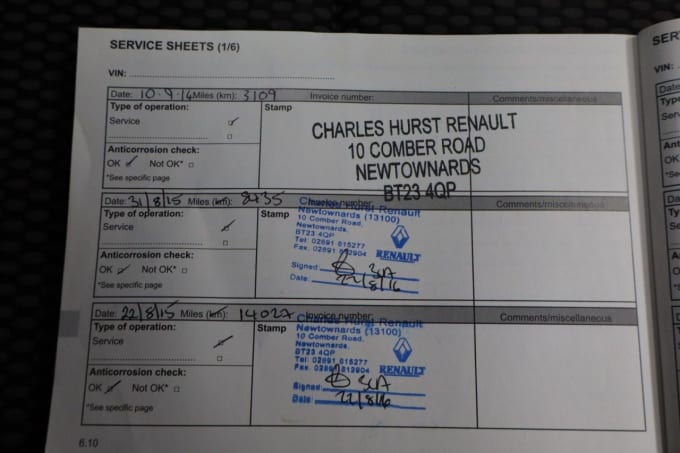 SERVICE SHEETS (1/6)
VIN:
Date: 10.9.14 Miles (km): 3109 Invoice number: Comments/miscellaneous
Type of operation: Stamp
Service
CHARLES HURST RENAULT
10 COMBER ROAD
NEWTOWNARDS
BT23 4QP
Anticorrosion check:
OK Not OK*
*See specific page
Date: 31/8/15 Miles (km): 8435 Invoice number: Comments/miscellaneous
Type of operation: Stamp
Service
Charles Hurst Renault
Newtownards (13100)
10 Comber Road,
Newtownards.
BT23 4QP
Tel: 02891 815277
Fax. 02891 812904 RENAULT
Signed:
Date: 22/8/16
Anticorrosion check:
OK Not OK*
*See specific page
Date: 22/8/15 Miles (km): 14027 Invoice number: Comments/miscellaneous
Type of operation: Stamp
Service
Charles Hurst Renault
Newtownards (13100)
10 Comber Road,
Newtownards.
BT23 4QP
Tel: 02891 815277
Fax. 02891 812904 RENAULT
Signed:
Date: 22/8/16
Anticorrosion check:
OK Not OK*
*See specific page
6.10
SER
VIN:
Date
Type
Serv